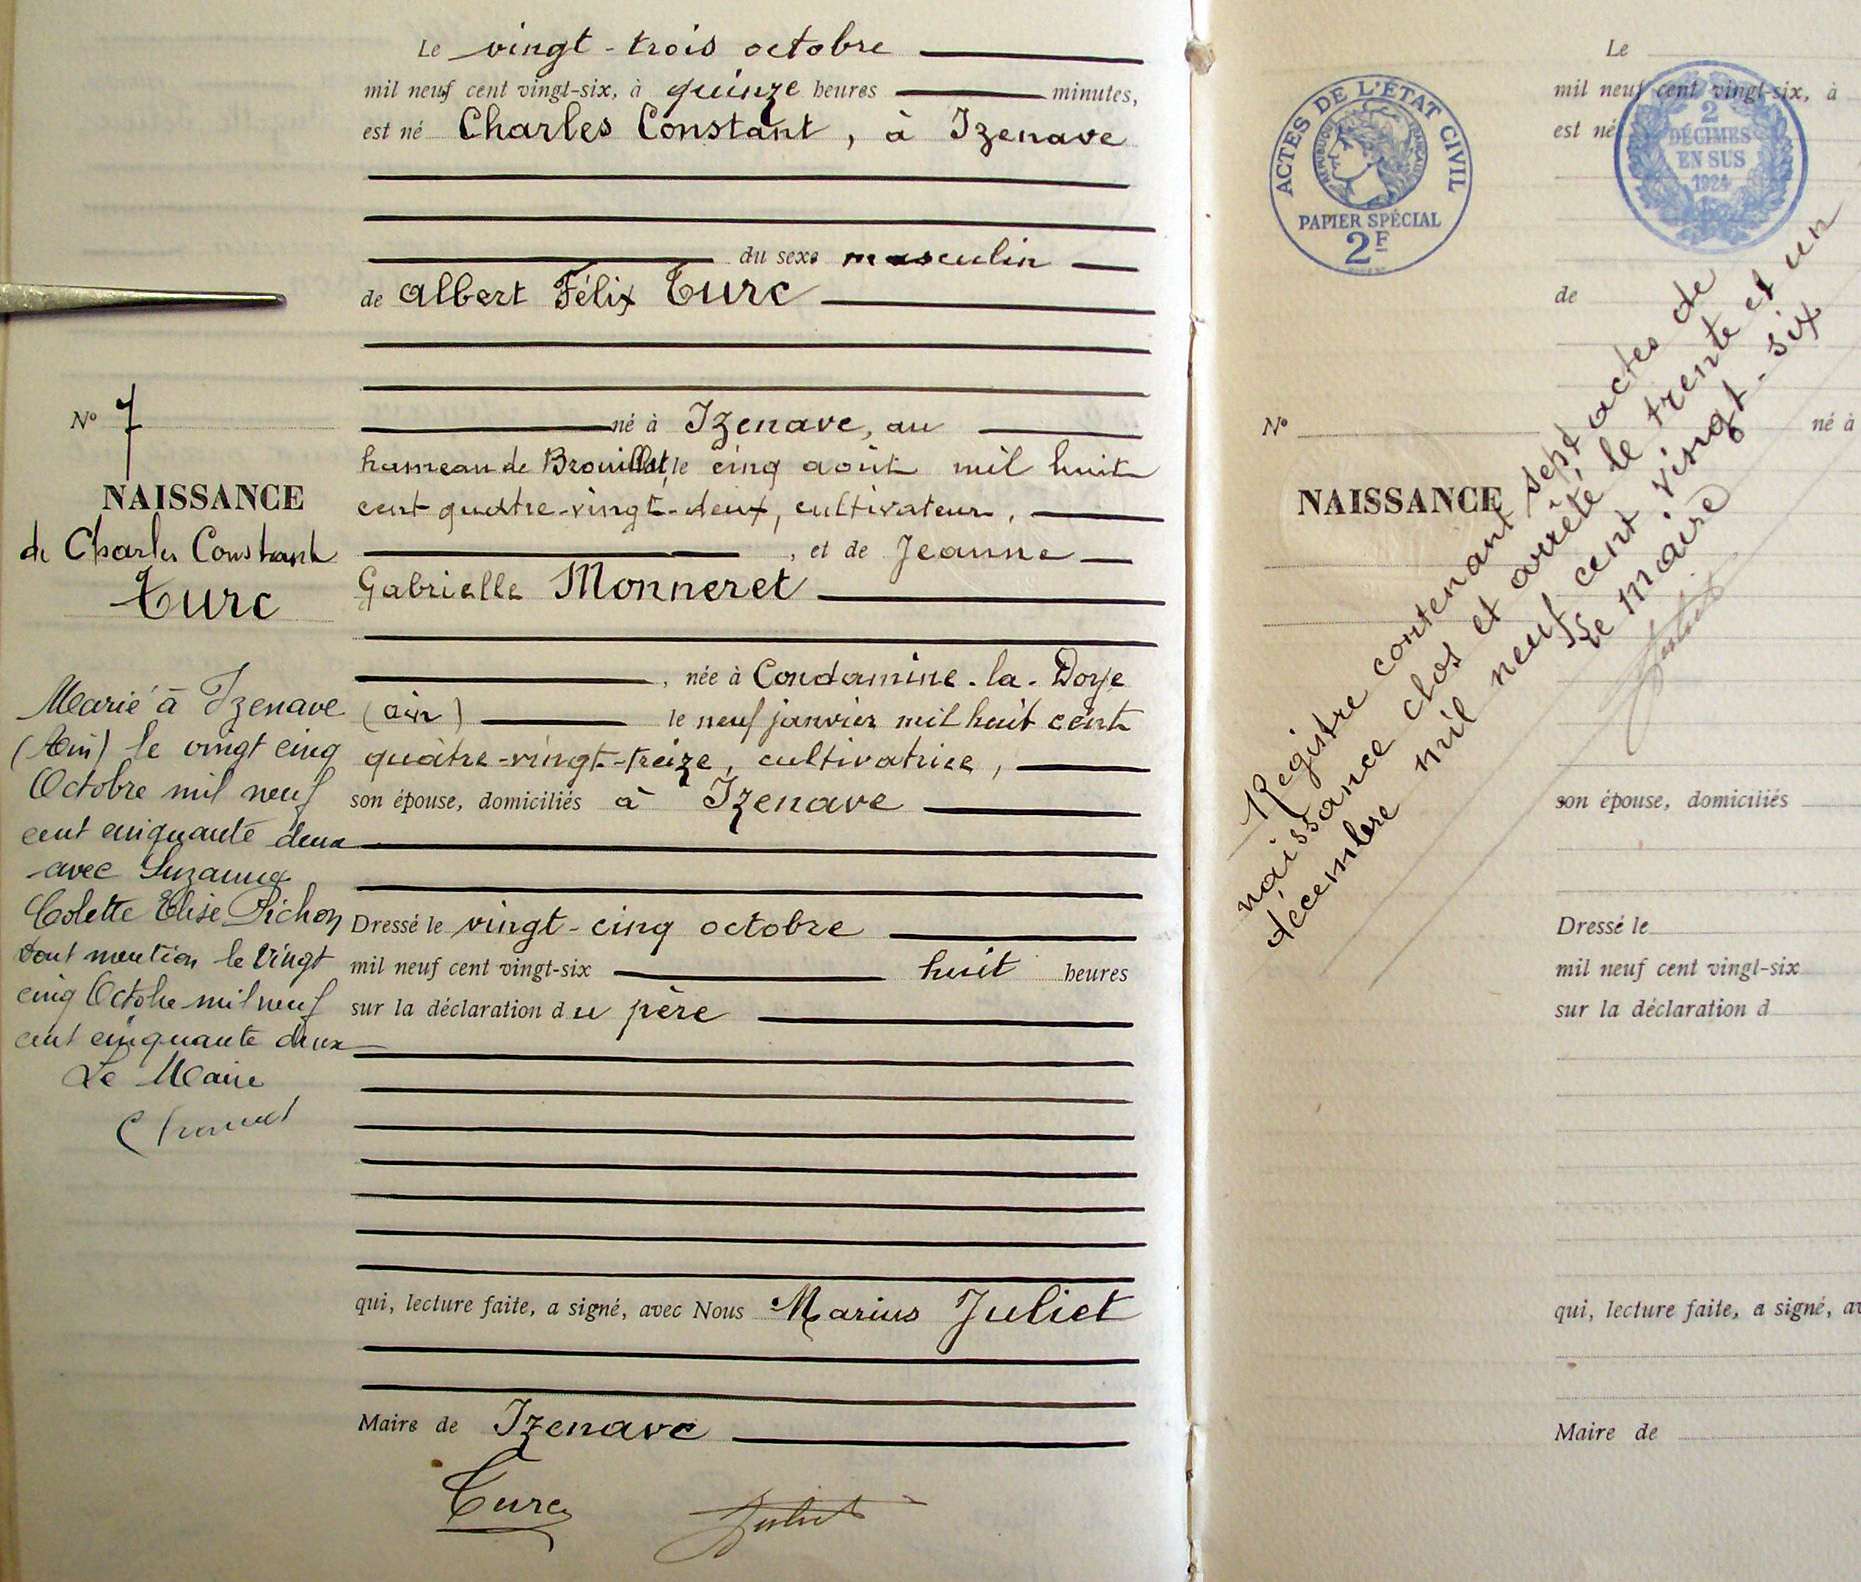 Le vingt-trois octobre
mil neuf cent vingt-six, à quinze heures minutes,
est né Charles Constant, à Izenave
du sexe masculin
de Albert Félix Turc
né à Izenave, au
hameau de Brouillat, le cinq août mil huit
cent quatre-vingt-deux, cultivateur,
, et de Jeanne
Gabrielle Monneret
, née à Condamine-la-Doye
(Ain) le neuf janvier mil huit cent
quatre-vingt-treize, cultivatrice,
son épouse, domiciliés à Izenave
Dressé le vingt-cinq octobre
mil neuf cent vingt-six huit heures
sur la déclaration du père
qui, lecture faite, a signé, avec Nous Marius Juliet
Maire de Izenave
Turc
Juliet
No 7
NAISSANCE
de Charles Constant
Turc
Marié à Izenave
(Ain) le vingt cinq
Octobre mil neuf
cent cinquante deux
avec Suzanne
Colette Elise Pichon
dont mention le vingt
cinq Octobre mil neuf
cent cinquante deux
Le Maire
ACTES DE L'ÉTAT CIVIL
RÉPUBLIQUE FRANÇAISE
PAPIER SPÉCIAL
2F
2
DÉCIMES
EN SUS
1924
Le
mil neuf cent vingt-six, à
est né
de
No
né à
NAISSANCE
Registre contenant sept actes de
naissance clos et arrêté le trente et un
décembre mil neuf cent vingt-six
Le Maire
Juliet
son épouse, domiciliés
Dressé le
mil neuf cent vingt-six
sur la déclaration d
qui, lecture faite, a signé, av
Maire de